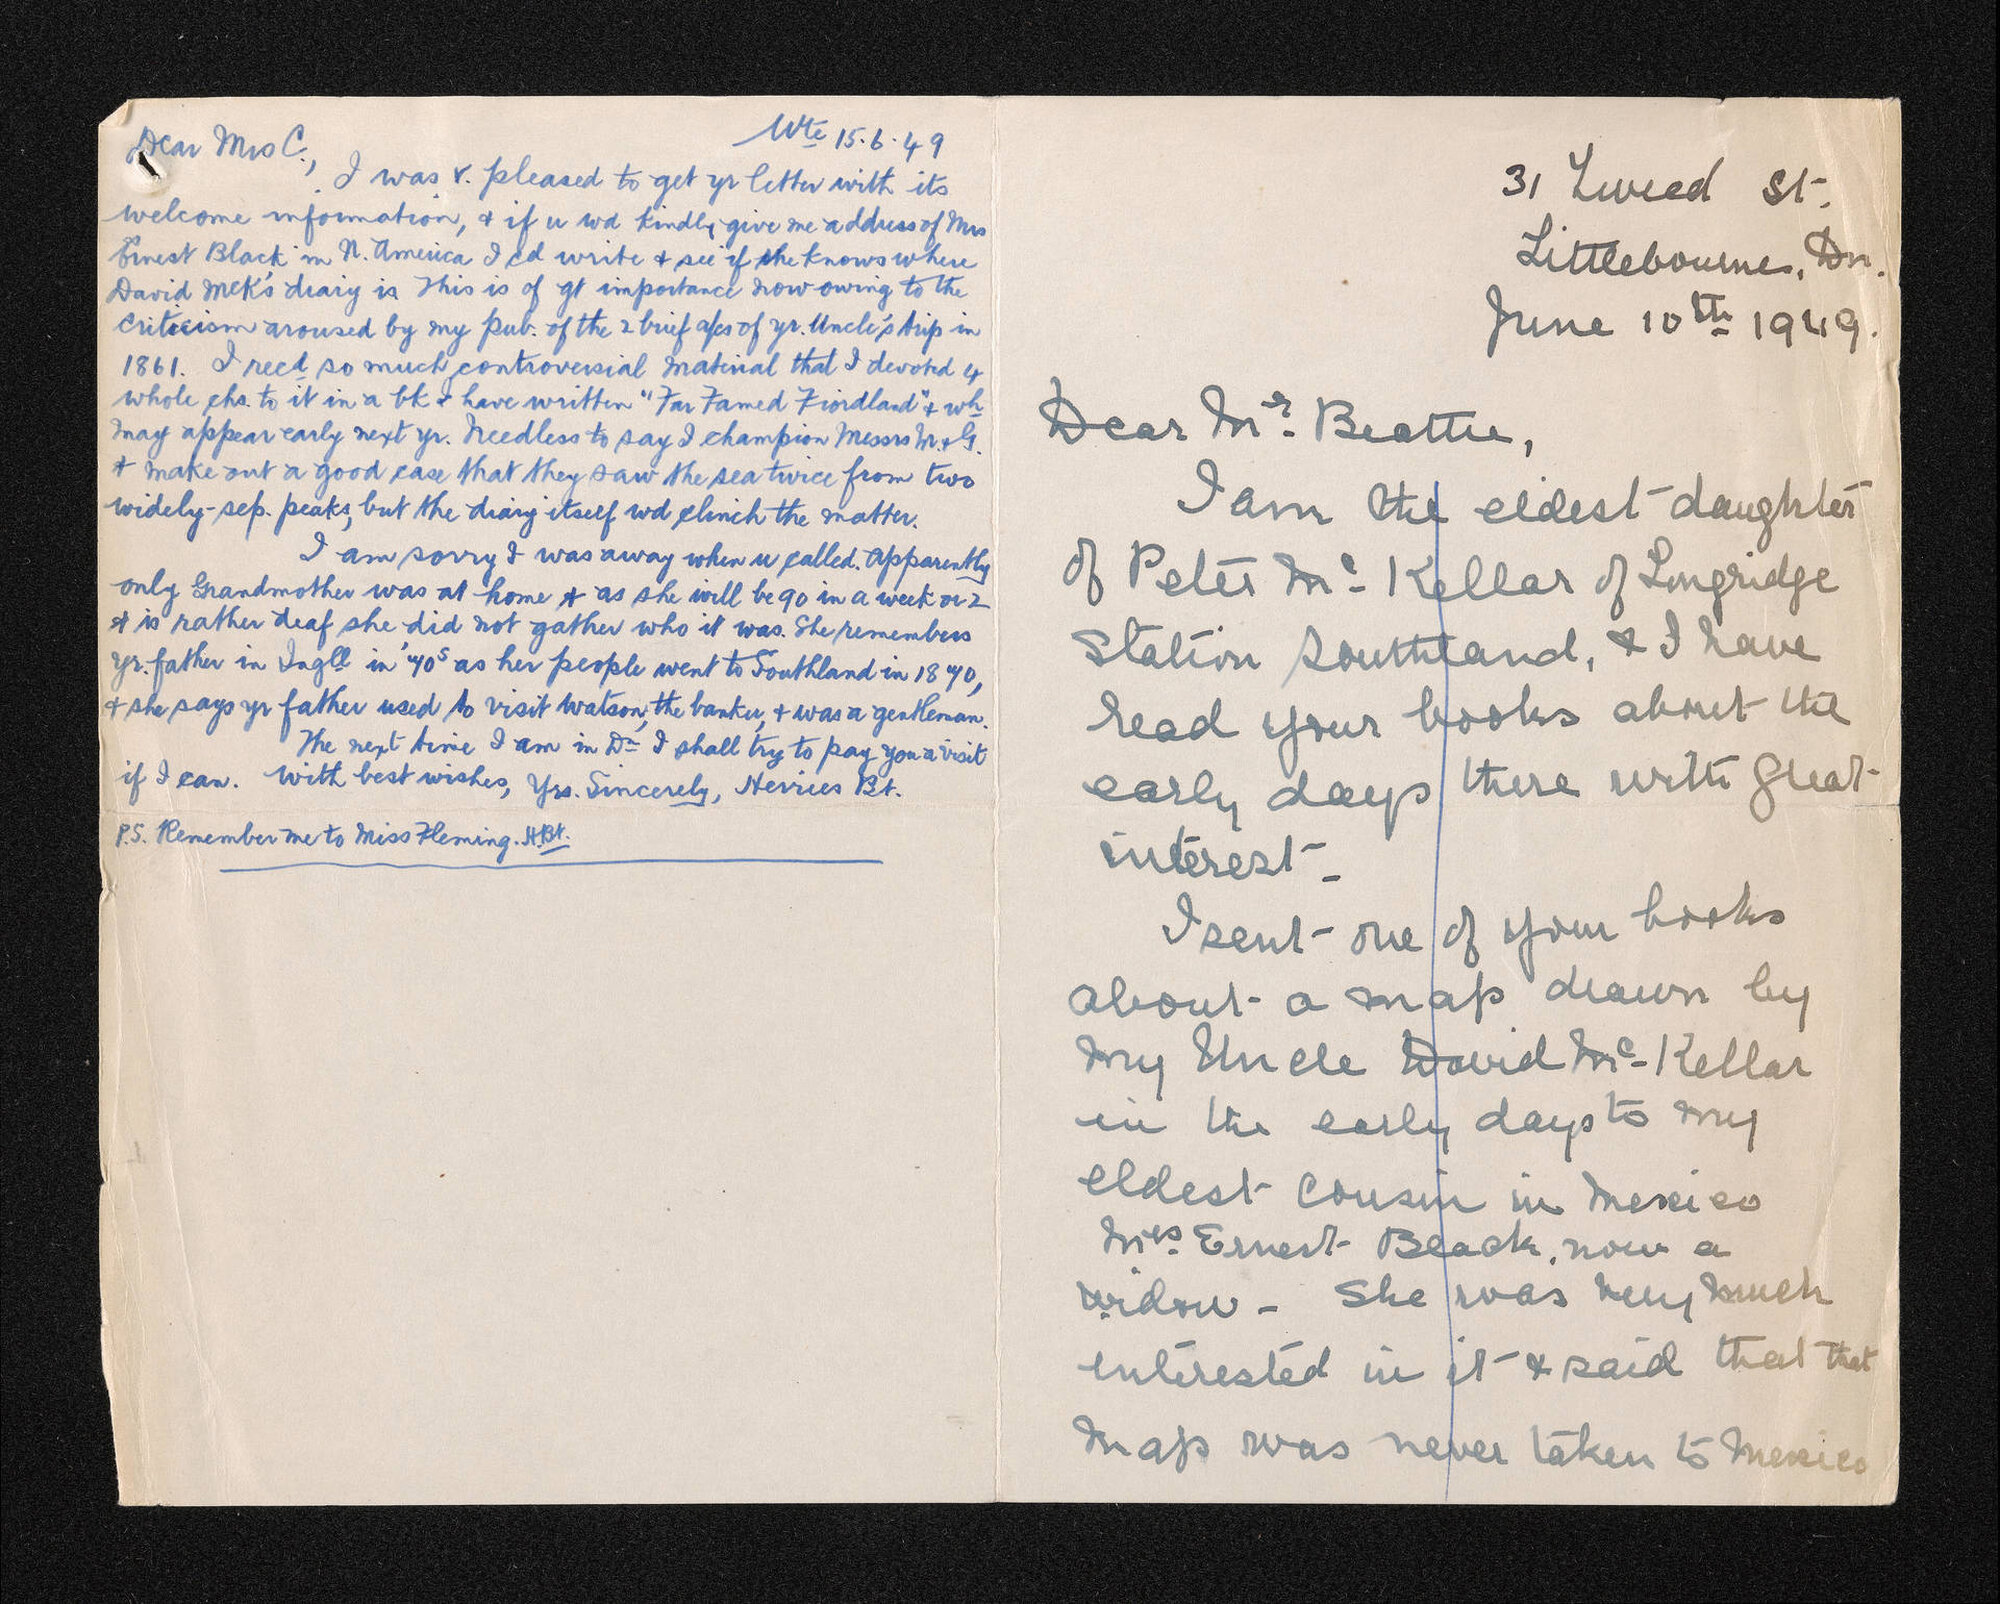 Wte 15.6.49
Dear Mrs C.,
I was v. pleased to get yr letter with its
welcome information, & if u wd kindly give me address of Mrs
Ernest Black in N. America I cd write & see if she knows where
David McK's diary is. This is of gt importance now owing to the
criticism aroused by my pub. of the 2 brief a/cs of yr. Uncle's trip in
1861. I recd so much controversial material that I devoted 4
whole chs. to it in a bk I have written "Far Famed Fiordland" & wh
may appear early next yr. Needless to say I champion Messrs M. & G.
& make out a good case that they saw the sea twice from two
widely-sep. peaks, but the diary itself wd clinch the matter.
I am sorry I was away when u called. Apparently
only Grandmother was at home & as she will be 90 in a week or 2
& is rather deaf she did not gather who it was. She remembers
yr. father in Ingll in '70s as her people went to Southland in 1870,
& she says yr father used to visit Watson, the banker, & was a gentleman.
The next time I am in Dn I shall try to pay you a visit
if I can. With best wishes, Yrs. Sincerely, Herries Bt.
P.S. Remember me to Miss Fleming. H.Bt.
31 Tweed St.
Littlebourne, Dn.
June 10th 1949.
Dear Mr. Beattie,
I am the eldest daughter
of Peter Mc Kellar of Longridge
Station Southland, & I have
read your books about the
early days there with great
interest -
I sent one of your books
about a map drawn by
my Uncle David Mc Kellar
in the early days to my
eldest cousin in Mexico
Mrs. Ernest Black, now a
widow - She was very much
interested in it & said that that
map was never taken to Mexico